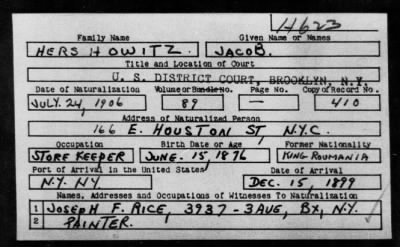 H623
Family Name Given Name or Names
HERSHOWITZ. JACOB.
Title and Location of Court
U. S. DISTRICT COURT, BROOKLYN, N.Y.
Date of Naturalization Volume or Bundle No. Page No. Copy of Record No.
JULY. 24, 1906 89 — 410
Address of Naturalized Person
166 E. HOUSTON ST, N.Y.C.
Occupation Birth Date or Age Former Nationality
STORE KEEPER JUNE. 15, 1876 KING ROUMANIA
Port of Arrival in the United States Date of Arrival
N.Y. NY DEC. 15, 1899
Names, Addresses and Occupations of Witnesses To Naturalization
1 JOSEPH F. RICE, 3937 - 3 AVE, BX, N.Y.
2 PAINTER.